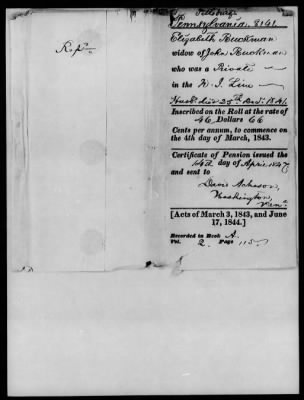 Pittsburg
Pennsylvania. 8141
Elizabeth Buckman
widow of John Buckman
who was a Private
in the N. J. Line
Inscribed on the Roll at the rate of
46 Dollars 66
Cents per annum, to commence on
the 4th day of March, 1843.
Certificate of Pension issued the
day of April 1847
and sent to
David Acheson,
Washington,
Pena
[Acts of March 3, 1843, and June
17, 1844.]
Recorded in Book A.
Vol. 2 Page 115